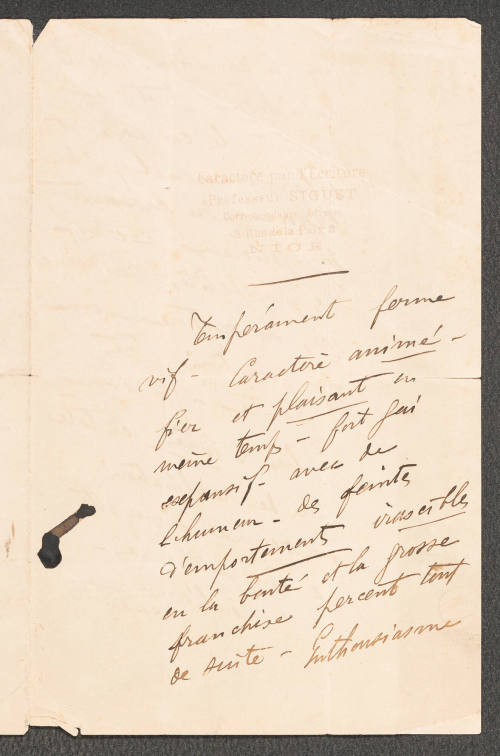 Caractère par l'Écriture
Professeur SIGUET
NICE
Tempérament ferme
vif - Caractère animé -
fier et plaisant en
même temps - fort gai
expansif - avec de
l'humeur - des feintes
d'emportements irascibles
en la bonté et la grosse
franchise percent tout
de suite - Enthousiasme